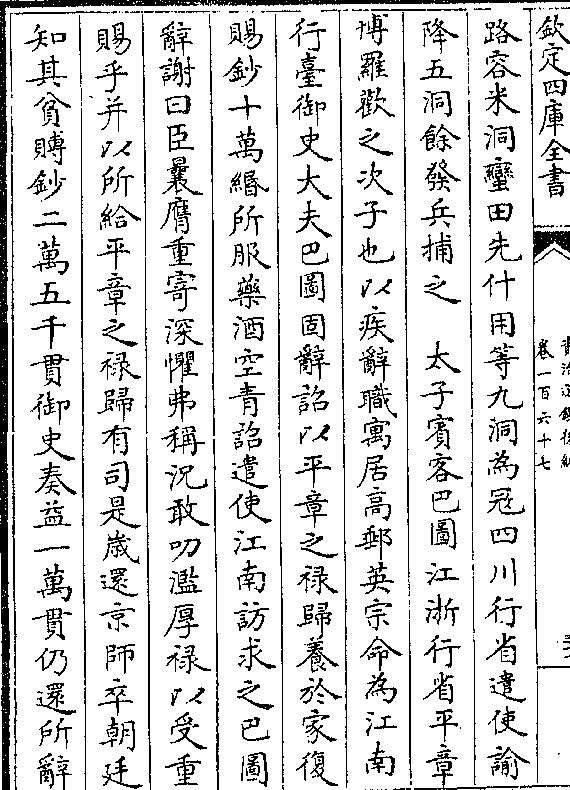 欽定四庫全書
卷一百六十七
路容米洞蠻田先什用等九洞為冦四川行省遣使諭
降五洞餘發兵捕之　太子賓客巴圖江浙行省平章
博羅歡之次子也以疾辭職寓居高郵英宗命為江南
行臺御史大夫巴圖固辭詔以平章之禄歸養於家復
賜鈔十萬緡所服藥酒空青詔遣使江南訪求之巴圖
辭謝曰臣曩膺重寄深懼弗稱況敢叨濫厚禄以受重
賜乎并以所給平章之禄歸有司是歲還京師卒朝廷
知其貧賻鈔二萬五千貫御史奏益一萬貫仍還所辭